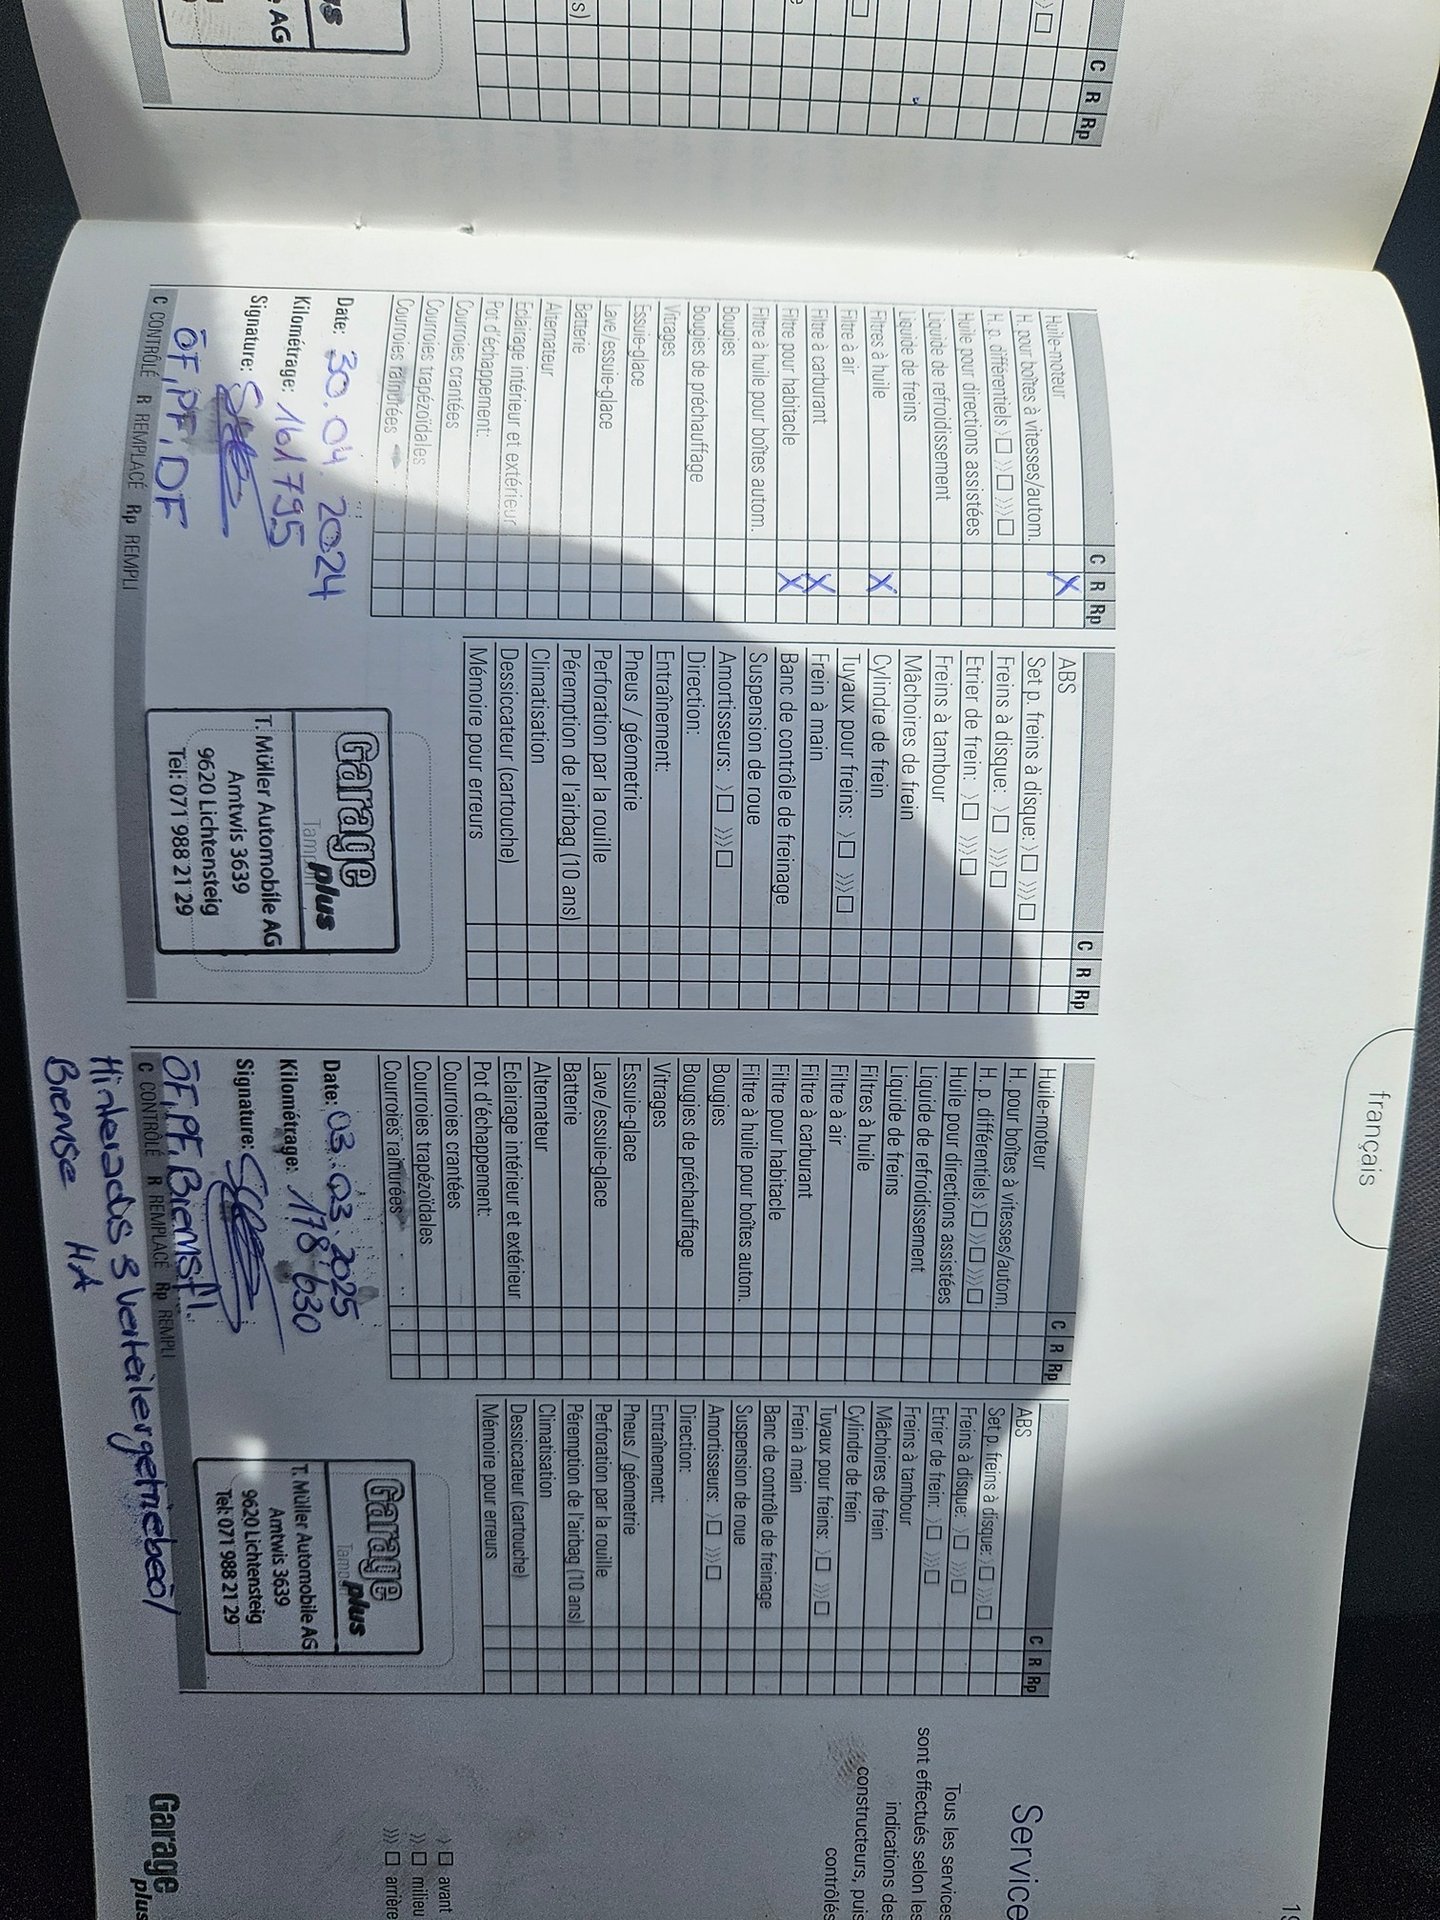 C R Rp
français
Huile-moteur
H. pour boîtes à vitesses/autom.
H. p. différentiels 〉□ 〉〉□ 〉〉〉□
Huile pour directions assistées
Liquide de refroidissement
Liquide de freins
Filtres à huile
Filtre à air
Filtre à carburant
Filtre pour habitacle
Filtre à huile pour boîtes autom.
Bougies
Bougies de préchauffage
Vitrages
Essuie-glace
Lave/essuie-glace
Batterie
Alternateur
Eclairage intérieur et extérieur
Pot d'échappement:
Courroies crantées
Courroies trapézoïdales
Courroies rainurées
C R Rp
X
X
X
X
Date: 30.04 2024
Kilométrage: 161795
Signature:
ÖF, PF, DF
C CONTRÔLÉ R REMPLACÉ Rp REMPLI
ABS
Set p. freins à disque: 〉□ 〉〉〉□
Freins à disque: 〉□ 〉〉〉□
Etrier de frein: 〉□ 〉〉〉□
Freins à tambour
Mâchoires de frein
Cylindre de frein
Tuyaux pour freins: 〉□ 〉〉〉□
Frein à main
Banc de contrôle de freinage
Suspension de roue
Amortisseurs: 〉□ 〉〉〉□
Direction:
Entraînement:
Pneus / géometrie
Perforation par la rouille
Péremption de l'airbag (10 ans)
Climatisation
Dessiccateur (cartouche)
Mémoire pour erreurs
C R Rp
Garage
plus
T. Müller Automobile AG
Amtwis 3639
9620 Lichtensteig
Tel: 071 988 21 29
Huile-moteur
H. pour boîtes à vitesses/autom.
H. p. différentiels 〉□ 〉〉□ 〉〉〉□
Huile pour directions assistées
Liquide de refroidissement
Liquide de freins
Filtres à huile
Filtre à air
Filtre à carburant
Filtre pour habitacle
Filtre à huile pour boîtes autom.
Bougies
Bougies de préchauffage
Vitrages
Essuie-glace
Lave/essuie-glace
Batterie
Alternateur
Eclairage intérieur et extérieur
Pot d'échappement:
Courroies crantées
Courroies trapézoïdales
Courroies rainurées
C R Rp
Date: 03.03.2025
Kilométrage: 178'630
Signature:
ÖF, PF, Bremsfl.
C CONTRÔLÉ R REMPLACÉ Rp REMPLI
Hinterachsverteilergetriebeöl
Bremse HA
ABS
Set p. freins à disque: 〉□ 〉〉〉□
Freins à disque: 〉□ 〉〉〉□
Etrier de frein: 〉□ 〉〉〉□
Freins à tambour
Mâchoires de frein
Cylindre de frein
Tuyaux pour freins: 〉□ 〉〉〉□
Frein à main
Banc de contrôle de freinage
Suspension de roue
Amortisseurs: 〉□ 〉〉〉□
Direction:
Entraînement:
Pneus / géometrie
Perforation par la rouille
Péremption de l'airbag (10 ans)
Climatisation
Dessiccateur (cartouche)
Mémoire pour erreurs
C R Rp
Garage
plus
T. Müller Automobile AG
Amtwis 3639
9620 Lichtensteig
Tel: 071 988 21 29
Service
Tous les services
sont effectués selon les
indications des
constructeurs, puis
contrôlés
〉□ avant
〉〉□ milieu
〉〉〉□ arrière
Garage
plus